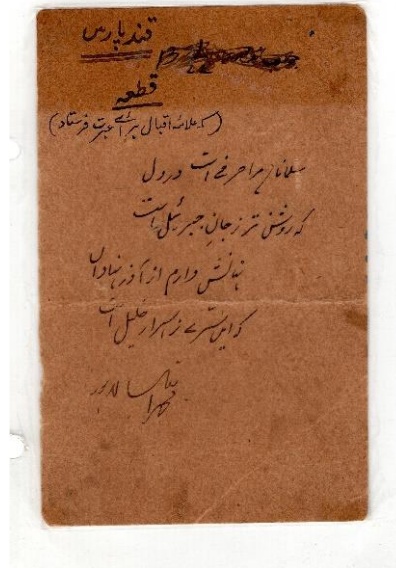 قند پارس
قطعہ
(کہ علامہ اقبال برائے عبرت فرستاد)
مسلماناں مرا حرفے است در دل
کہ روشن تر ز جانِ جبرئیل است
نہانش دارم از آذر نہاداں
کہ ایں سرے ز اسرار خلیل است
لاہور